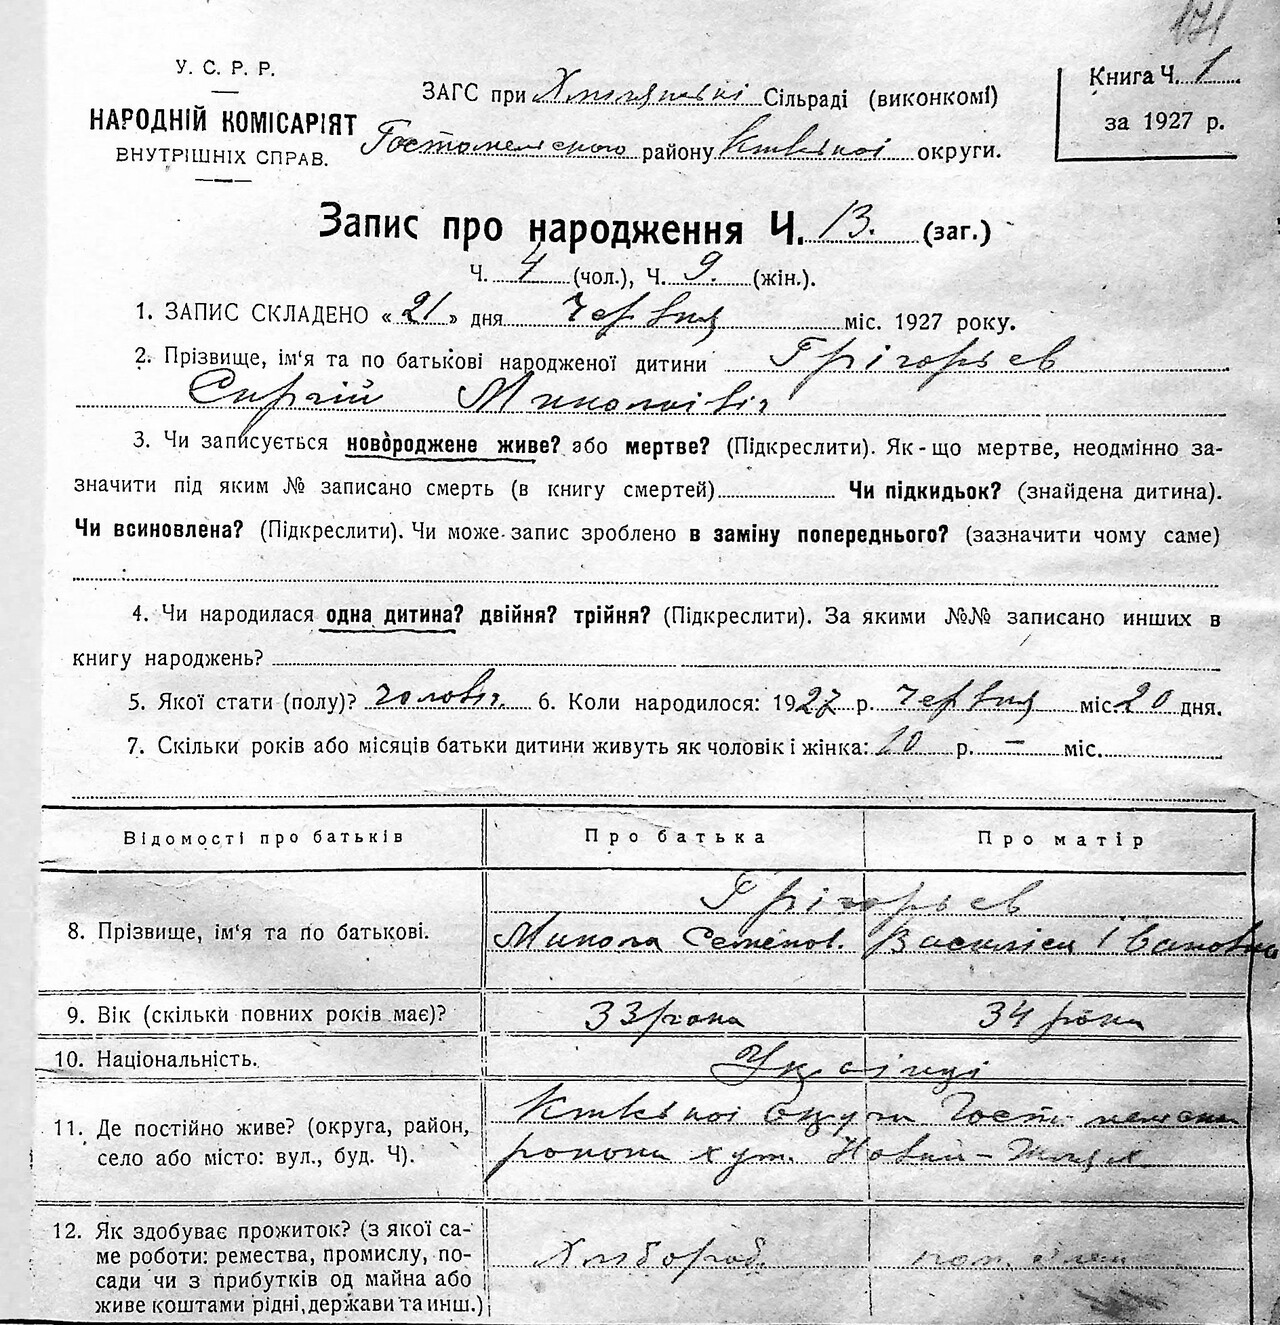 171
У. С. Р. Р.
НАРОДНІЙ КОМІСАРІЯТ
ВНУТРІШНІХ СПРАВ.
ЗАГС при Сільраді (виконкомі)
Гостомельского району Київської округи.
Книга Ч. 1
за 1927 р.
Запис про народження Ч. 13. (заг.)
Ч. 4 (чол.), Ч. 9. (жін.).
1. ЗАПИС СКЛАДЕНО «21» дня червня міс. 1927 року.
2. Прізвище, ім'я та по батькові народженої дитини Грігорьєв
Сиргій Миколаівіч
3. Чи записується новороджене живе? або мертве? (Підкреслити). Як-що мертве, неодмінно за-
значити під яким № записано смерть (в книгу смертей) Чи підкидьок? (знайдена дитина).
Чи всиновлена? (Підкреслити). Чи може запис зроблено в заміну попереднього? (зазначити чому саме)
4. Чи народилася одна дитина? двійня? трійня? (Підкреслити). За якими №№ записано инших в
книгу народжень?
5. Якої стати (полу)? чоловіч. 6. Коли народилося: 1927 р. червня міс. 20 дня.
7. Скільки років або місяців батьки дитини живуть як чоловік і жінка: 10 р. — міс.
Відомості про батьків Про батька Про матір
8. Прізвище, ім'я та по батькові.
Грігорьєв
Микола Семенов. Василіса Івановна
9. Вік (скільки повних років має)? 33 рока 34 рока
10. Національність. Українці
11. Де постійно живе? (округа, район,
село або місто: вул., буд. Ч).
Київської округи
району хут. Новий-
12. Як здобуває прожиток? (з якої са-
ме роботи: ремества, промислу, по-
сади чи з прибутків од майна або
живе коштами рідні, держави та инш.)
Хлібороб.